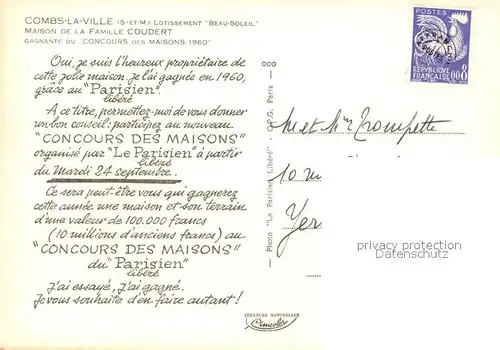 COMBS-LA-VILLE (S-ET-M.) LOTISSEMENT "BEAU-SOLEIL"
MAISON DE LA FAMILLE COUDERT
GAGNANTE DU "CONCOURS DES MAISONS 1960"
Oui, je suis l'heureux propriétaire de
cette jolie maison. Je l'ai gagnée en 1960,
grâce au "Parisien"
libéré
A ce titre, permettez-moi de vous donner
un bon conseil : participez au nouveau
"CONCOURS DES MAISONS"
organisé par "Le Parisien" à partir
libéré
du Mardi 24 septembre.
Ce sera peut-être vous qui gagnerez
cette année une maison et son terrain
d'une valeur de 100.000 francs
(10 millions d'anciens francs) au
"CONCOURS DES MAISONS"
du "Parisien"
libéré
J'ai essayé, j'ai gagné.
Je vous souhaite d'en faire autant !
— Photo "Le Parisien Libéré" - O.P.G. Paris —
COULEURS NATURELLES
Cimcolor
POSTES
REPUBLIQUE
FRANÇAISE 0,08
M et Mme Trompette
10
privacy protection